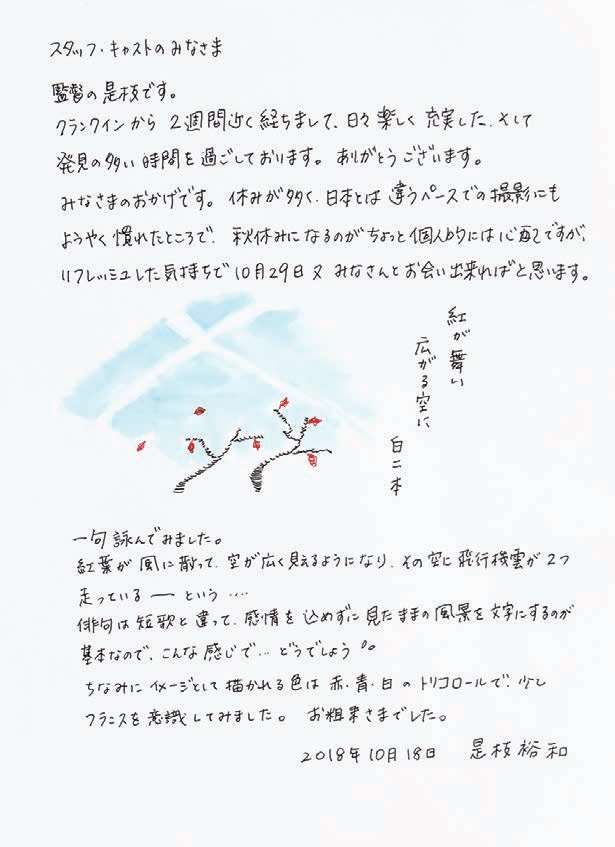 スタッフ・キャストのみなさま
監督の是枝です。
クランクインから 2週間近く経ちまして、日々楽しく充実した、そして
発見の多い時間を過ごしております。ありがとうございます。
みなさまのおかげです。休みが多く、日本とは違うペースでの撮影にも
ようやく慣れたところで、秋休みになるのがちょっと個人的には心配ですが、
リフレッシュした気持ちで10月29日又みなさんとお会い出来ればと思います。
紅が舞い
広がる空に
白二本
一句詠んでみました。
紅葉が風に散って、空が広く見えるようになり、その空に飛行機雲が2つ
走っている ― という ‥‥
俳句は短歌と違って、感情を込めずに見たままの風景を文字にするのが
基本なので、こんな感じで… どうでしょう。
ちなみにイメージとして描かれる色は赤・青・白のトリコロールで、少し
フランスを意識してみました。 お粗末さまでした。
2018年10月18日 是枝裕和